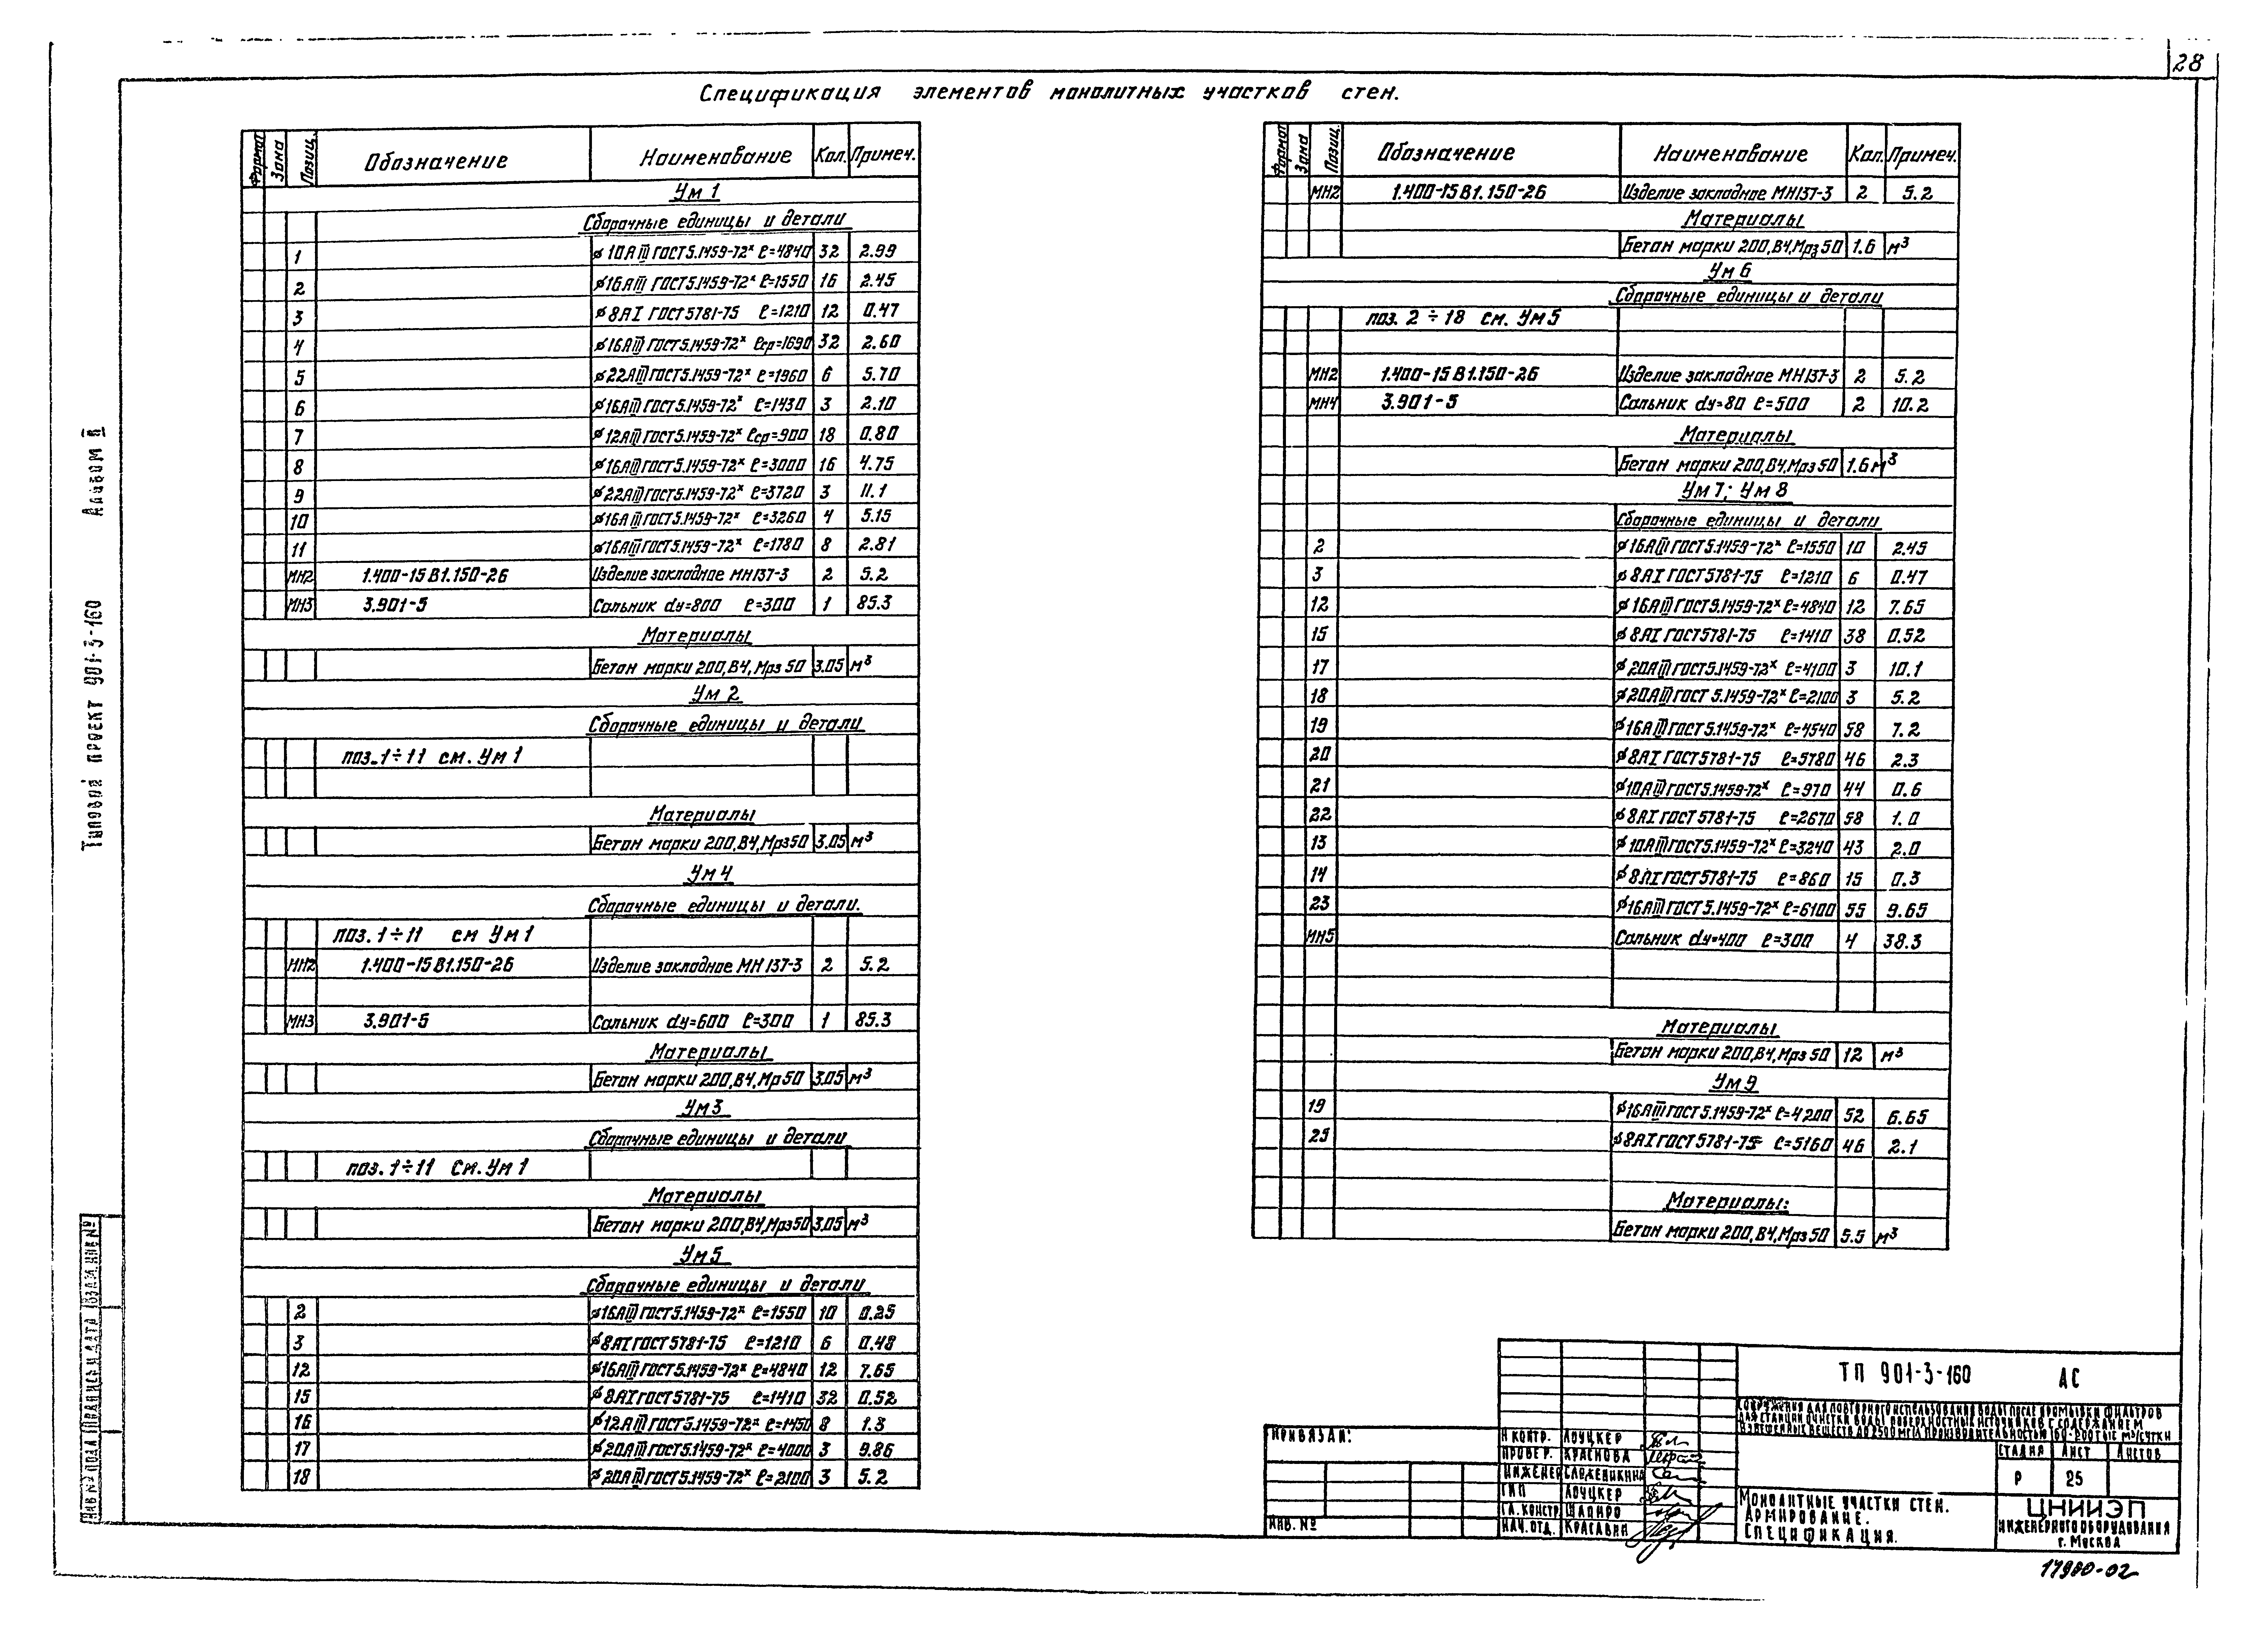 28
Спецификация элементов монолитных участков стен.
Формат Зона Позиц. Обозначение Наименование Кол. Примеч.
Ум 1
Сборочные единицы и детали
1 ⌀10АIII ГОСТ 5.1459-72ˣ ℓ=4840 32 2.99
2 ⌀16АIII ГОСТ 5.1459-72ˣ ℓ=1550 16 2.45
3 ⌀8АI ГОСТ 5781-75 ℓ=1210 12 0.47
4 ⌀16АIII ГОСТ 5.1459-72ˣ ℓср=1690 32 2.60
5 ⌀22АIII ГОСТ 5.1459-72ˣ ℓ=1960 6 5.70
6 ⌀16АIII ГОСТ 5.1459-72ˣ ℓ=1430 3 2.10
7 ⌀12АIII ГОСТ 5.1459-72ˣ ℓср=900 18 0.80
8 ⌀16АIII ГОСТ 5.1459-72ˣ ℓ=3000 16 4.75
9 ⌀22АIII ГОСТ 5.1459-72ˣ ℓ=3720 3 11.1
10 ⌀16АIII ГОСТ 5.1459-72ˣ ℓ=3260 4 5.15
11 ⌀16АIII ГОСТ 5.1459-72ˣ ℓ=1780 8 2.81
МН2 1.400-15 В1.150-26 Изделие закладное МН137-3 2 5.2
МН3 3.901-5 Сальник dу=800 ℓ=300 1 85.3
Материалы
Бетон марки 200, В4, Мрз 50 3.05 м³
Ум 2
Сборочные единицы и детали
поз. 1÷11 см. Ум 1
Материалы
Бетон марки 200, В4, Мрз 50 3.05 м³
Ум 4
Сборочные единицы и детали.
поз. 1÷11 см Ум 1
МН2 1.400-15 В1.150-26 Изделие закладное МН 137-3 2 5.2
МН3 3.901-5 Сальник dу=600 ℓ=300 1 85.3
Материалы
Бетон марки 200, В4, Мр 50 3.05 м³
Ум 3
Сборочные единицы и детали
поз. 1÷11 См. Ум 1
Материалы
Бетон марки 200, В4, Мрз 50 3.05 м³
Ум 5
Сборочные единицы и детали
2 ⌀16АIII ГОСТ 5.1459-72ˣ ℓ=1550 10 0.25
3 ⌀8АI ГОСТ 5781-75 ℓ=1210 6 0.48
12 ⌀16АIII ГОСТ 5.1459-72ˣ ℓ=4840 12 7.65
15 ⌀8АI ГОСТ 5781-75 ℓ=1410 32 0.52
16 ⌀12АIII ГОСТ 5.1459-72ˣ ℓ=1450 8 1.3
17 ⌀20АIII ГОСТ 5.1459-72ˣ ℓ=4000 3 9.86
18 ⌀20АIII ГОСТ 5.1459-72ˣ ℓ=2100 3 5.2
Формат Зона Позиц. Обозначение Наименование Кол. Примеч.
МН2 1.400-15 В1.150-26 Изделие закладное МН137-3 2 5.2
Материалы
Бетон марки 200, В4, Мрз 50 1.6 м³
Ум 6
Сборочные единицы и детали
поз. 2÷18 см. Ум 5
МН2 1.400-15 В1.150-26 Изделие закладное МН137-3 2 5.2
МН4 3.901-5 Сальник dу=80 ℓ=500 2 10.2
Материалы
Бетон марки 200, В4, Мрз 50 1.6 м³
Ум 7; Ум 8
Сборочные единицы и детали
2 ⌀16АIII ГОСТ 5.1459-72ˣ ℓ=1550 10 2.45
3 ⌀8АI ГОСТ 5781-75 ℓ=1210 6 0.47
12 ⌀16АIII ГОСТ 5.1459-72ˣ ℓ=4840 12 7.65
15 ⌀8АI ГОСТ 5781-75 ℓ=1410 38 0.52
17 ⌀20АIII ГОСТ 5.1459-72ˣ ℓ=4100 3 10.1
18 ⌀20АIII ГОСТ 5.1459-72ˣ ℓ=2100 3 5.2
19 ⌀16АIII ГОСТ 5.1459-72ˣ ℓ=4540 58 7.2
20 ⌀8АI ГОСТ 5781-75 ℓ=5780 46 2.3
21 ⌀10АIII ГОСТ 5.1459-72ˣ ℓ=970 44 0.6
22 ⌀8АI ГОСТ 5781-75 ℓ=2670 58 1.0
13 ⌀10АIII ГОСТ 5.1459-72ˣ ℓ=3240 43 2.0
14 ⌀8АI ГОСТ 5781-75 ℓ=860 15 0.3
23 ⌀16АIII ГОСТ 5.1459-72ˣ ℓ=6100 55 9.65
МН5 Сальник dу=400 ℓ=300 4 38.3
Материалы
Бетон марки 200, В4, Мрз 50 12 м³
Ум 9
19 ⌀16АIII ГОСТ 5.1459-72ˣ ℓ=4200 52 6.65
25 ⌀8АI ГОСТ 5781-75 ℓ=5160 46 2.1
Материалы:
Бетон марки 200, В4, Мрз 50 5.5 м³
Типовой проект 901-3-160 Альбом II
ИНВ № подл Подпись и дата Взам. инв №
Привязан:
ИНВ. №
Н контр. Лоуцкер
Провер. Краснова
Инженер
ГИП Лоуцкер
Гл. констр Шапиро
Нач. отд. Красавин
ТП 901-3-160 АС
Сооружения для повторного использования воды после промывки фильтров
для станции очистки воды поверхностных источников с содержанием
взвешенных веществ до 2500 мг/л производительностью 160-200 тыс м³/сутки
Стадия Лист Листов
Р 25
Монолитные участки стен.
Армирование.
Спецификация.
ЦНИИЭП
инженерного оборудования
г. Москва
17980-02